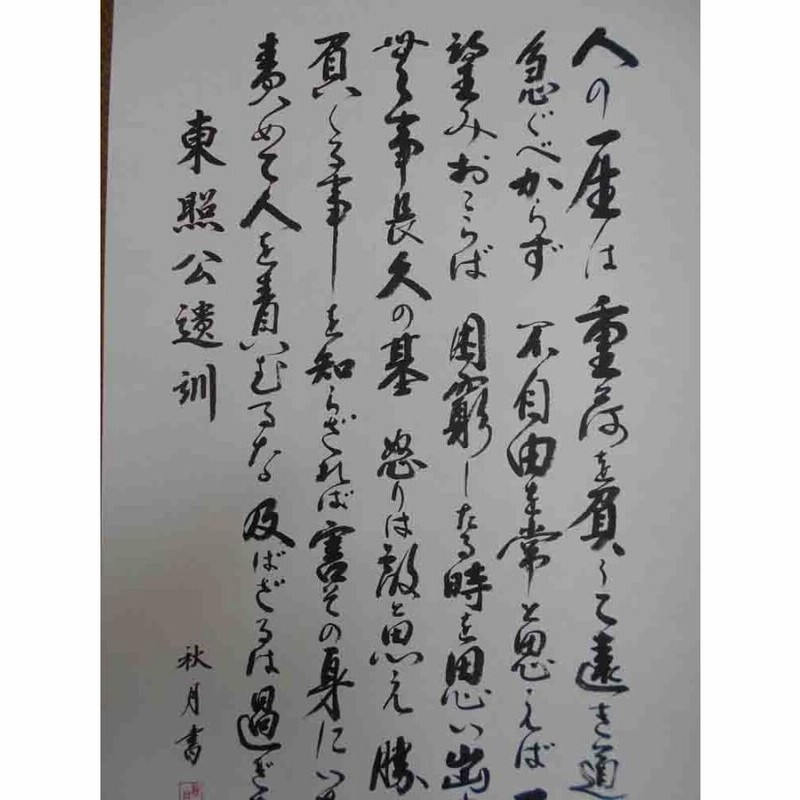 人の一生は重荷を負うて遠き道
急ぐべからず 不自由を常と思えば
望みおこらば 困窮したる時を思い出
無事長久の基 怒りは敵と思え 勝
負くる事を知らざれば害その身にい
責めて人を責むるな 及ばざるは過ぎ
東照公遺訓
秋月書